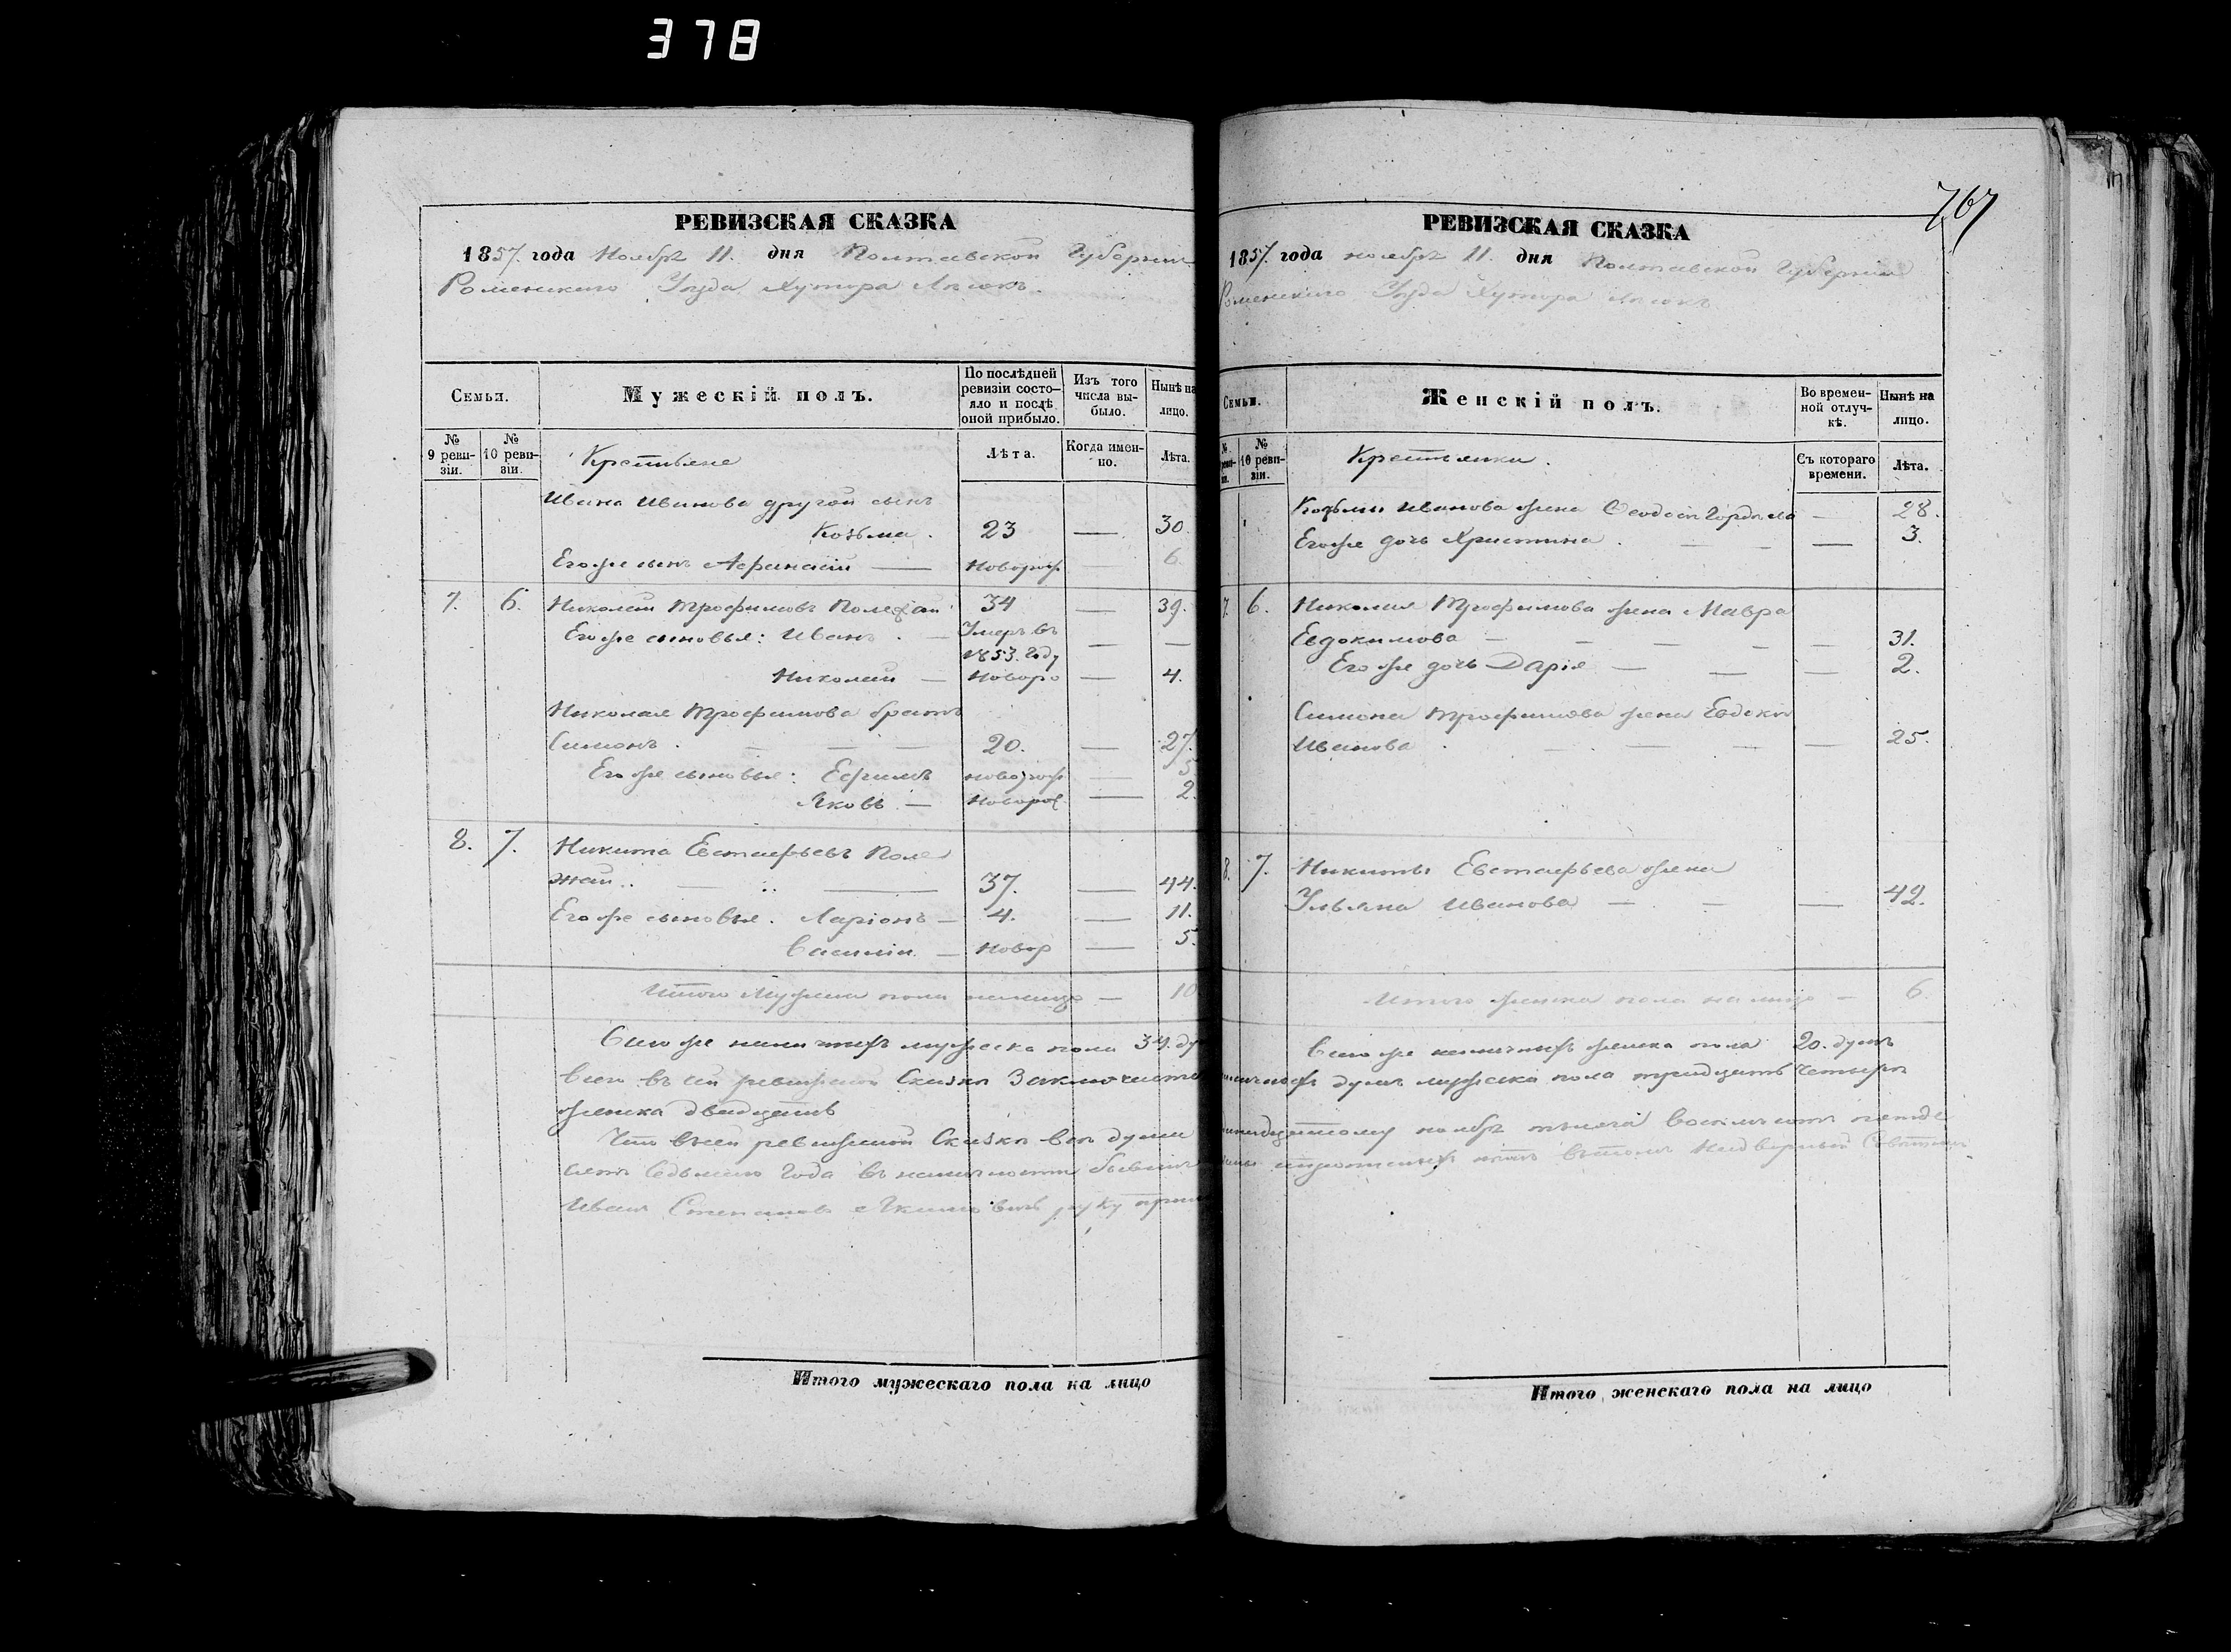 378
767
РЕВИЗСКАЯ СКАЗКА
1857. года Ноября 11. дня Полтавской Губерніи
Роменскаго Уезда Хутора
Семьи.
Мужескій полъ.
По послѣдней ревизіи состояло и послѣ оной прибыло.
Изъ того числа выбыло.
Нынѣ на лицо.
№ 9 ревизіи.
№ 10 ревизіи.
Крестьяне
Лѣта.
Когда именно.
Лѣта.
Ивана Иванова другой сынъ
Козьма. 23 — 30.
Его же сынъ Афанасій — новорож 6.
7. 6. Николай Трофимовъ 34 — 39.
Его же сыновья: Иванъ. — Умеръ въ 1853. году — —
Николай — новоро — 4.
Николая Трофимова братъ
Симонъ. — — — 20. — 27.
Его же сыновья: Ефимъ новорож — 5
Яковъ. — новорож — 2.
8. 7. Никита Евстафьевъ Поле
жай.. — 37. — 44.
Его же сыновья. Ларіонъ — 4. — 11.
Василій. — новор — 5.
Итого Мужеска пола налицо — 10
Всего же наличныхъ мужеска пола 34. ду
Всего въ сей ревизской Сказкѣ Заключаетс
женска двадцать
Что въ сей ревизской Сказкѣ все души
сятъ седьмаго года въ наличности бывшія
Иванъ Степановъ руку при
Итого мужескаго пола на лицо
РЕВИЗСКАЯ СКАЗКА
1857. года ноября 11. дня Полтавской Губерніи
Роменскаго Уезда Хутора
Семьи.
Женскій полъ.
Во временной отлучкѣ.
Нынѣ на лицо.
№ 10 ревизіи.
Крестьянки.
Съ котораго времени.
Лѣта.
Козьмы Иванова жена — 28.
Его же дочь Христина. — — — 3.
7. 6. Николая Трофимова жена Мавра
Евдокимова — — — — — 31.
Его же дочь Дарія — — — 2.
Симона Трофимова жена
Иванова. — — — — 25.
8. 7. Никиты Евстафьева жена
Ульяна Иванова — — — 42.
Итого женска пола на лицо — 6.
Всего же наличныхъ женска пола 20. душъ
душъ мужеска пола тридцать четыре
ноября мѣсяца восемьсотъ пятьде
Надворный Совѣтникъ
Итого женскаго пола на лицо